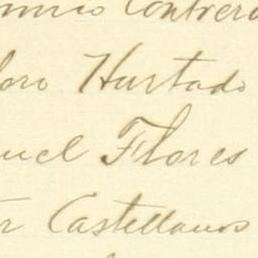 Contrera
oro Hurtado
uel Flores
r Castellanos